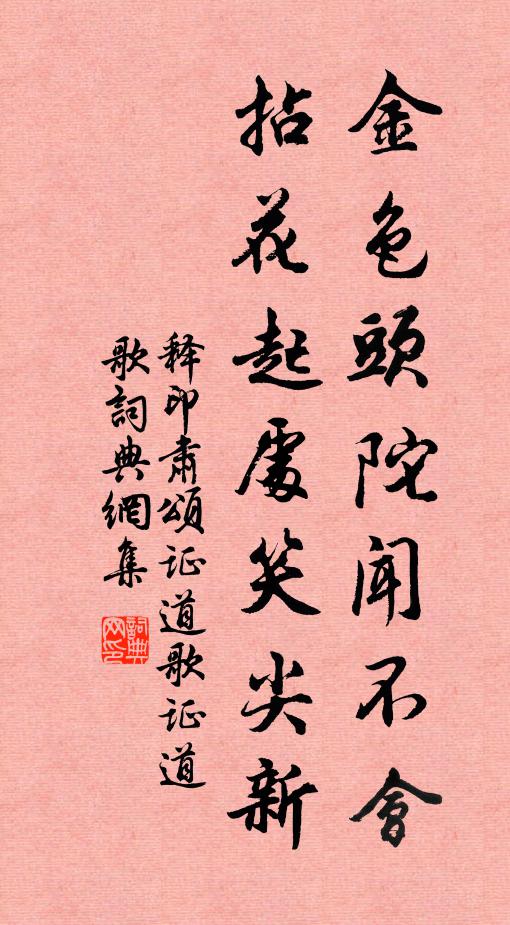 金色頭陀闻不會
拈花起處笑尖新
释印肃頌证道歌证道
歌詞典網集
詞典网印